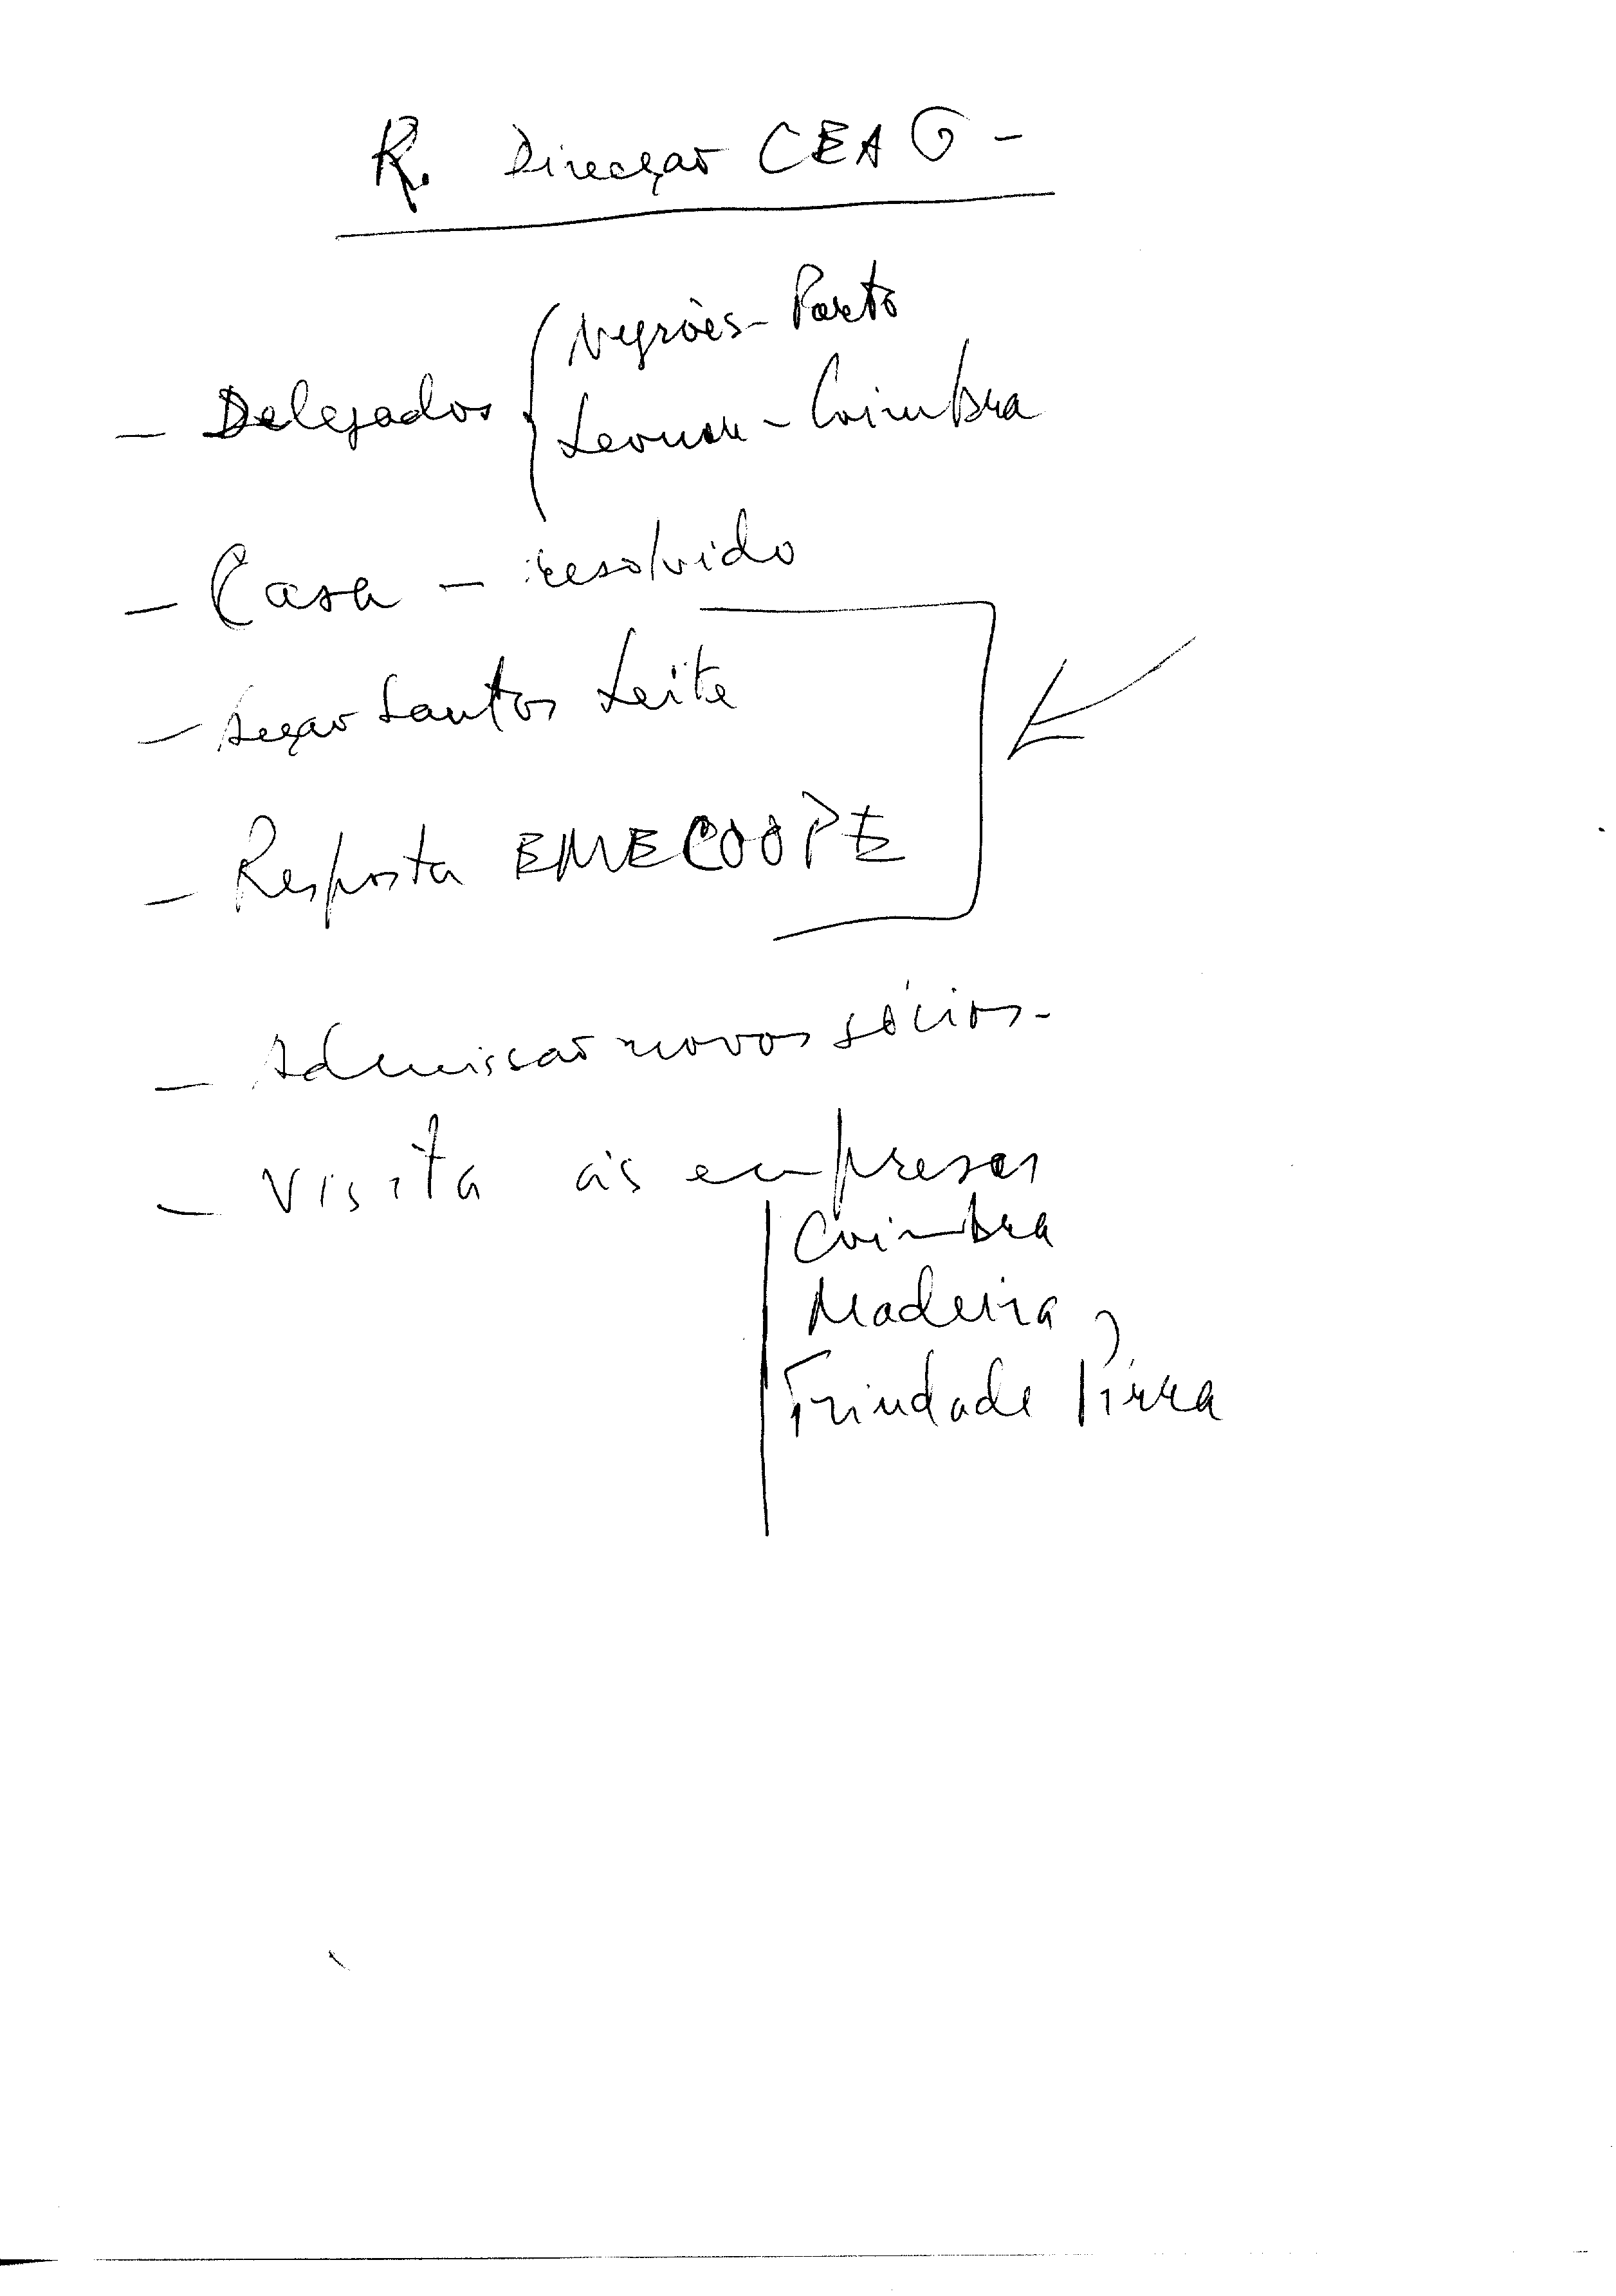 R. Direcção CEAG -
- Delegados
Negrões - Porto
- Coimbra
- Casa - resolvido
- Santos Leite
- Resposta EMECOOPE
- Admissão novos sócios -
- Visita às empresas
Coimbra
Madeira
Trindade Pirra